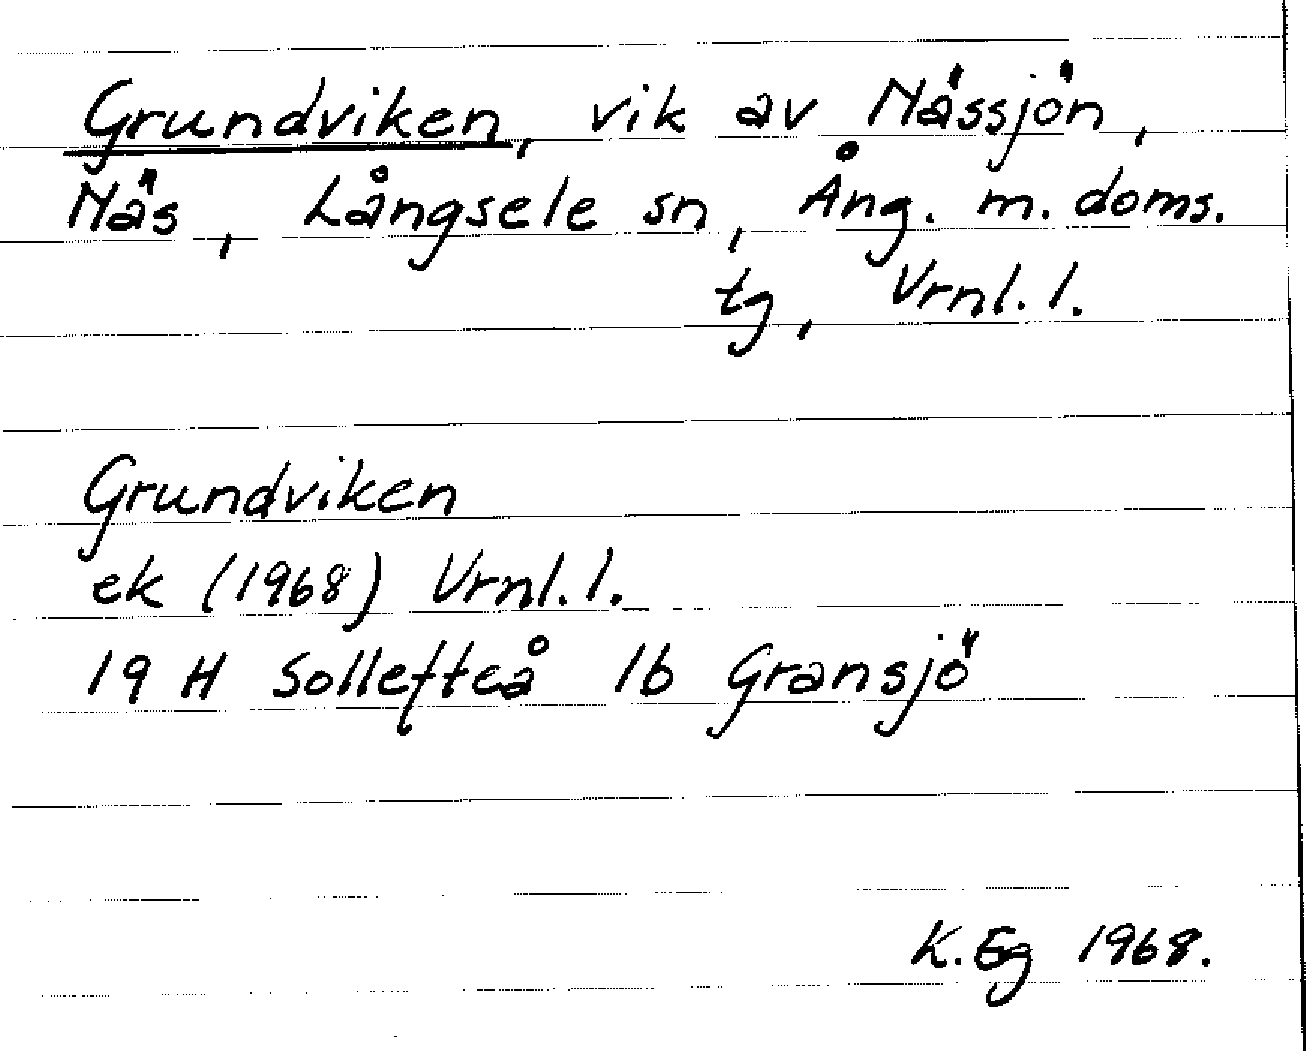 Grundviken, vik av Nässjön,
Näs, Långsele sn, Ång. m. doms.
tg, Vrnl. l.
Grundviken
ek (1968) Vrnl. l.
19 H Sollefteå 1b Gransjö
K. Eg 1968.